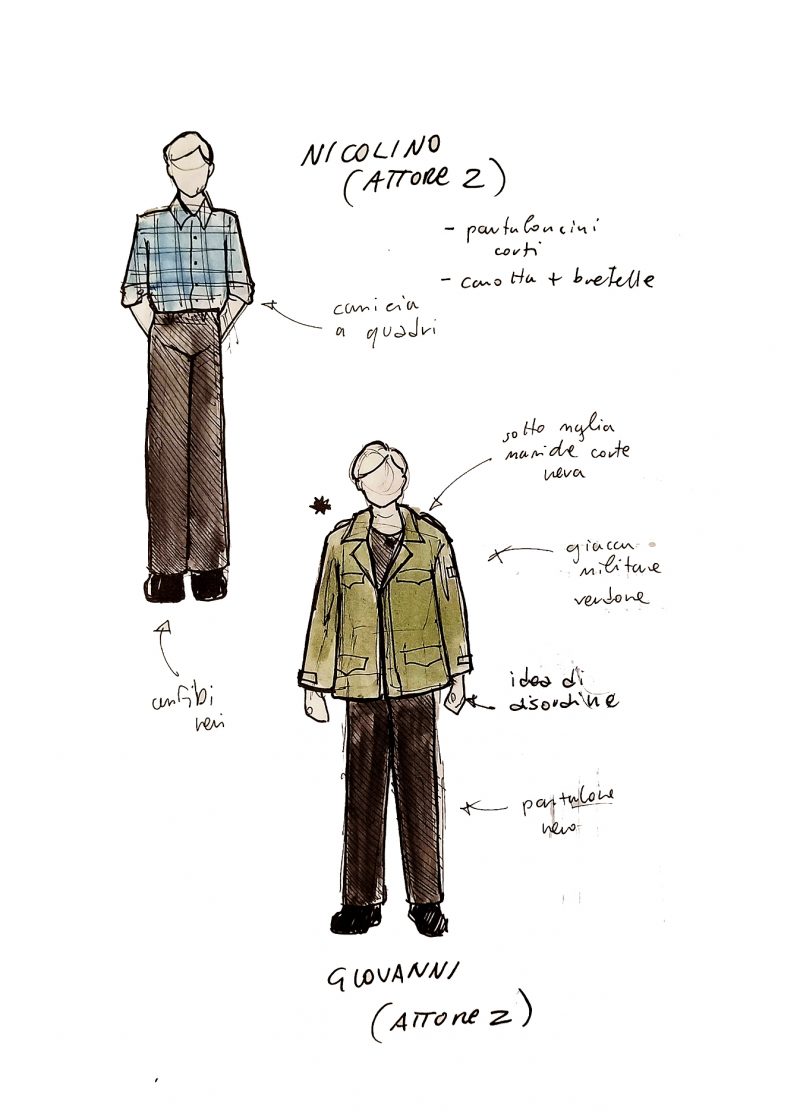 NICOLINO
(ATTORE 2)
- pantaloncini
corti
- canotta + bretelle
camicia
a quadri
sotto maglia
maniche corte
nera
giacca
militare
verdone
anfibi
neri
idea di
disordine
pantalone
nero
GIOVANNI
(ATTORE 2)